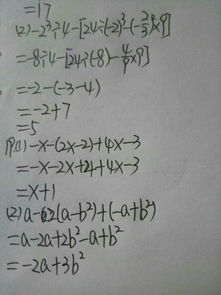 =17
(2)-2³÷4-[24÷(-2)³-(-2/3)²×9]
=-8÷4-[24÷(-8)-4/9×9]
=-2-(-3-4)
=-2+7
=5
19(1)-x-(2x-2)+4x-3
=-x-2x+2+4x-3
=x+1
(2)a-2(a-b²)+(-a+b²)
=a-2a+2b²-a+b²
=-2a+3b²